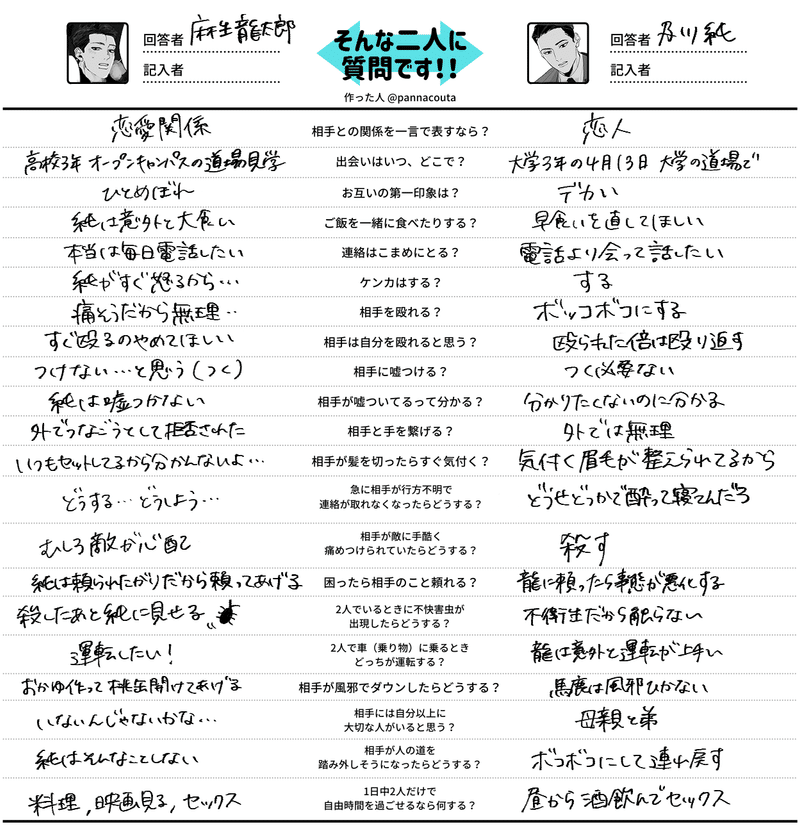 回答者 麻生龍太郎
記入者
そんな二人に
質問です!!
作った人 @pannacouta
回答者 及川純
記入者
恋愛関係 相手との関係を一言で表すなら? 恋人
高校3年 オープンキャンパスの道場見学 出会いはいつ、どこで? 大学3年の4月13日 大学の道場で
ひとめぼれ お互いの第一印象は? デカい
純は意外と大食い ご飯を一緒に食べたりする? 早食いを直してほしい
本当は毎日電話したい 連絡はこまめにとる? 電話より会って話したい
純がすぐ怒るから… ケンカはする? する
痛そうだから無理‥ 相手を殴れる? ボッコボコにする
すぐ殴るのやめてほしい 相手は自分を殴れると思う? 殴られた倍は殴り返す
つけない…と思う(つく) 相手に嘘つける? つく必要ない
純は嘘つかない 相手が嘘ついてるって分かる? 分かりたくないのに分かる
外でつなごうとして拒否された 相手と手を繋げる? 外では無理
いつもセットしてるから分かんないよ… 相手が髪を切ったらすぐ気付く? 気付く眉毛が整えられてるから
どうする…どうしよう… 急に相手が行方不明で
連絡が取れなくなったらどうする? どうせどっかで酔って寝てんだろ
むしろ敵が心配 相手が敵に手酷く
痛めつけられていたらどうする? 殺す
純は頼られたがりだから頼ってあげる 困ったら相手のこと頼れる? 龍に頼ったら事態が悪化する
殺したあと純に見せる 2人でいるときに不快害虫が
出現したらどうする? 不衛生だから触らない
運転したい! 2人で車(乗り物)に乗るとき
どっちが運転する? 龍は意外と運転が上手い
おかゆ作って桃缶開けてあげる 相手が風邪でダウンしたらどうする? 馬鹿は風邪ひかない
いないんじゃないかな… 相手には自分以上に
大切な人がいると思う? 母親と弟
純はそんなことしない 相手が人の道を
踏み外しそうになったらどうする? ボコボコにして連れ戻す
料理,映画見る,セックス 1日中2人だけで
自由時間を過ごせるなら何する? 昼から酒飲んでセックス